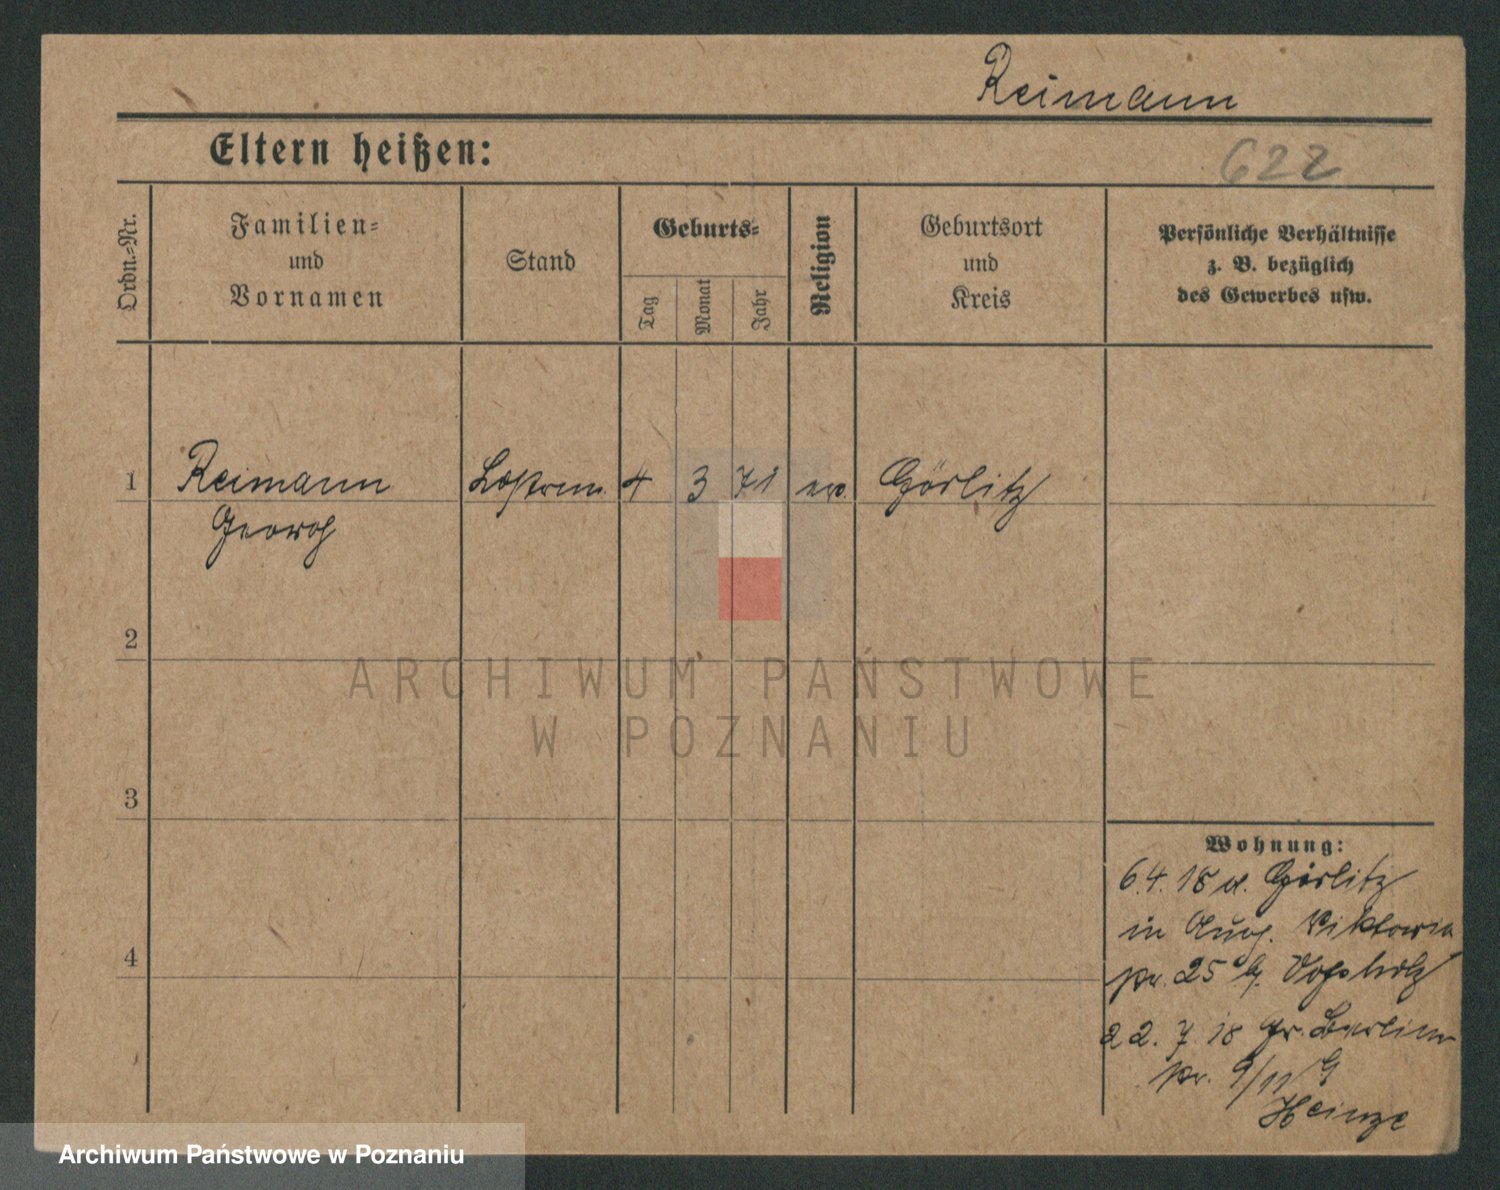 Reimann
Eltern heißen:
622
Ordn.-Nr.
Familien-
und
Vornamen
Stand
Geburts-
Tag
Monat
Jahr
Religion
Geburtsort
und
Kreis
Persönliche Verhältnisse
z. B. bezüglich
des Gewerbes usw.
1 Reimann 4 3 71 ev. Görlitz
Georg
2
ARCHIWUM PAŃSTWOWE
W POZNANIU
3
Wohnung:
6.4.18 v. Görlitz
in Aug. Viktoria
4
str. 25 b.
22.7.18 Gr. Berliner
str. 9/11
Heinze
Archiwum Państwowe w Poznaniu